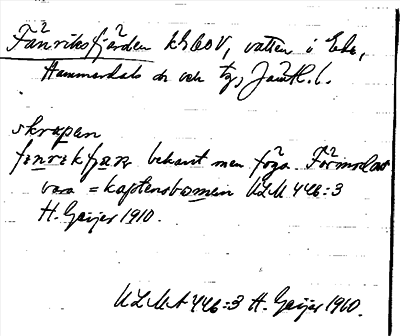 Fänriksfjärden kbl 60 V, vatten i Ede,
Hammerdals sn och tg, Jämtl. l.
skrapan
fenrekfjæn bekant men föga. Förmodas
vara = kaptensbomen ULMA 446:3
H. Geijer 1910.
ULMA 446:3 H. Geijer 1910.